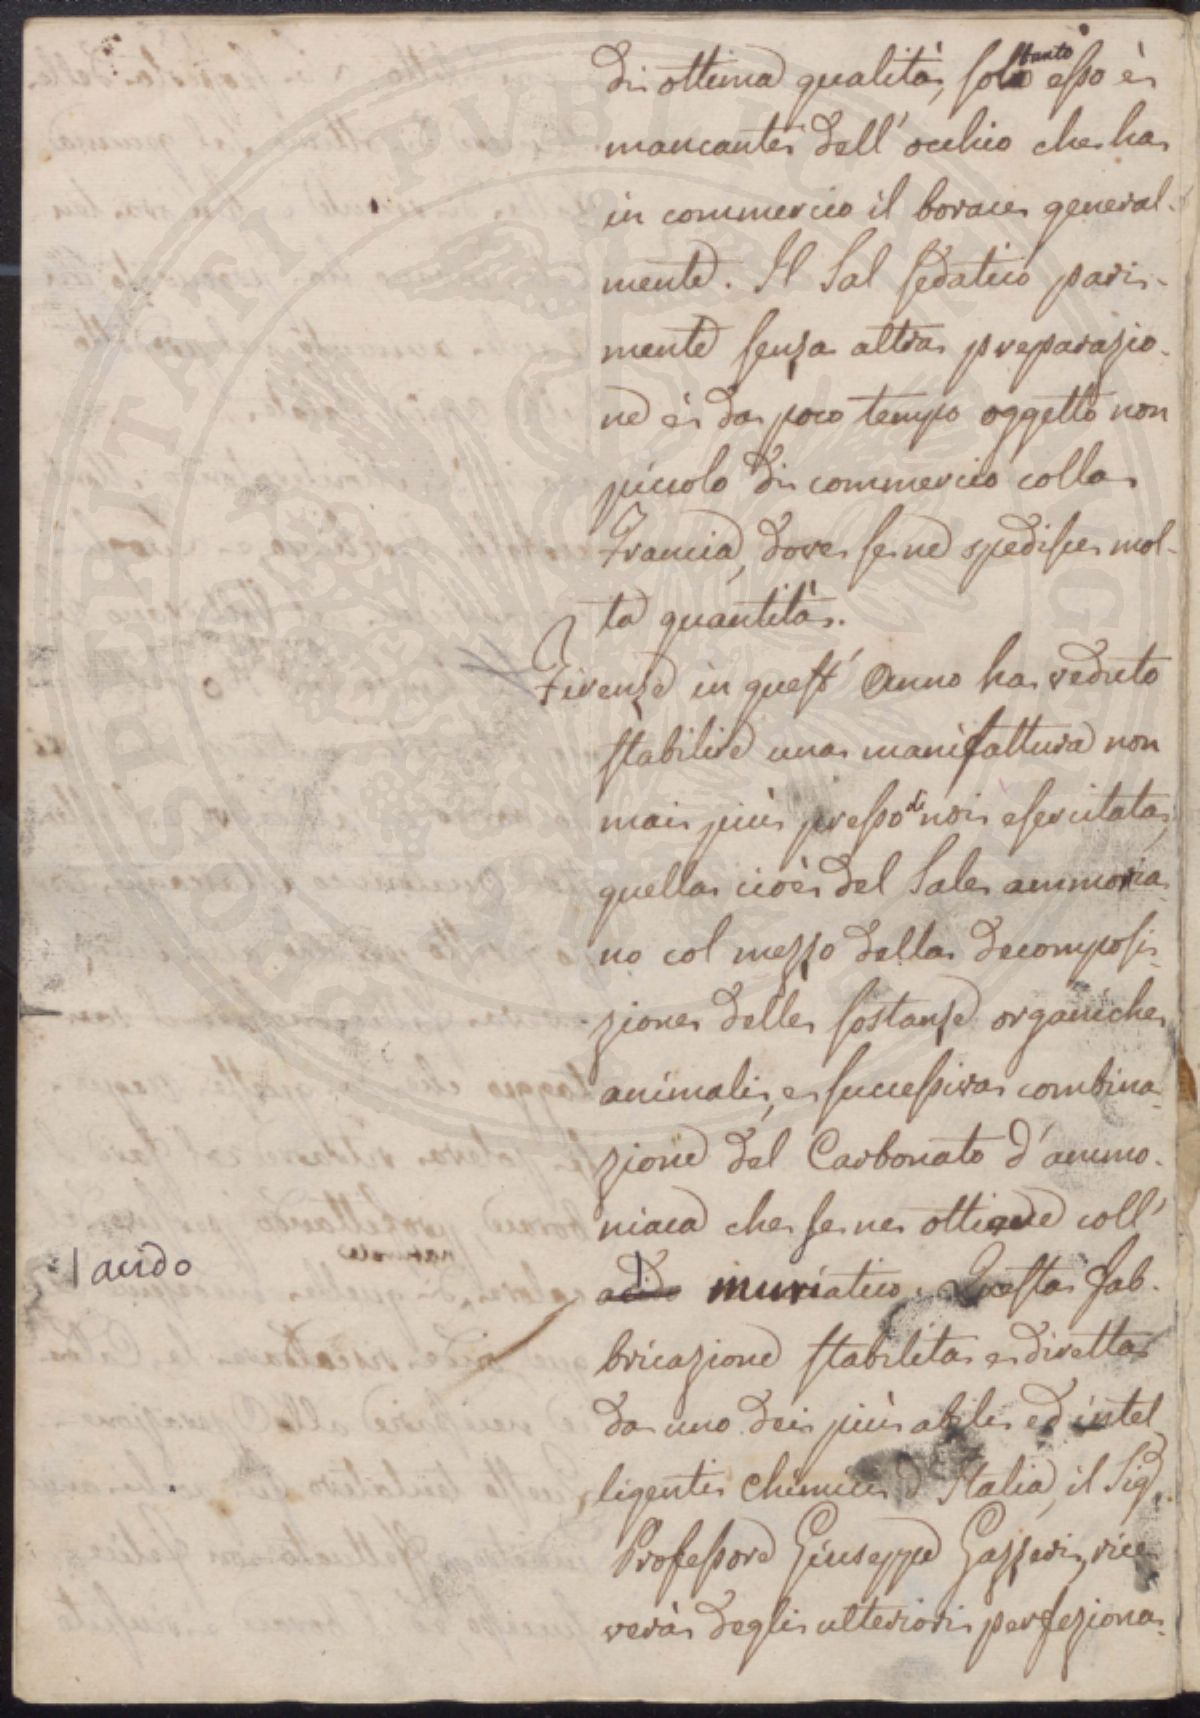 di ottima qualità, soltanto esso è
mancante dell' occhio che ha
in commercio il borace general-
mente. Il Sal sedativo pari-
mente senza altra preparazio-
ne è da poco tempo oggetto non
piccolo di commercio colla
Francia, dove se ne spedisce mol-
ta quantità.
Firenze in quest' Anno ha veduto
stabilire una manifattura non
mai più presso di noi esercitata,
quella cioè del Sale ammonia-
no col mezzo della decomposi-
zione delle sostanze organiche
animali, e successiva combina-
zione del Carbonato d' ammo-
niaca che se ne ottiene coll'
acido muriatico. Questa fab-
| acido
bricazione stabilita e diretta
da uno dei più abili ed intel-
ligenti chimici d' Italia, il Sig.
Professore Giuseppe Gazzeri, rice-
verà degli ulteriori perfeziona-